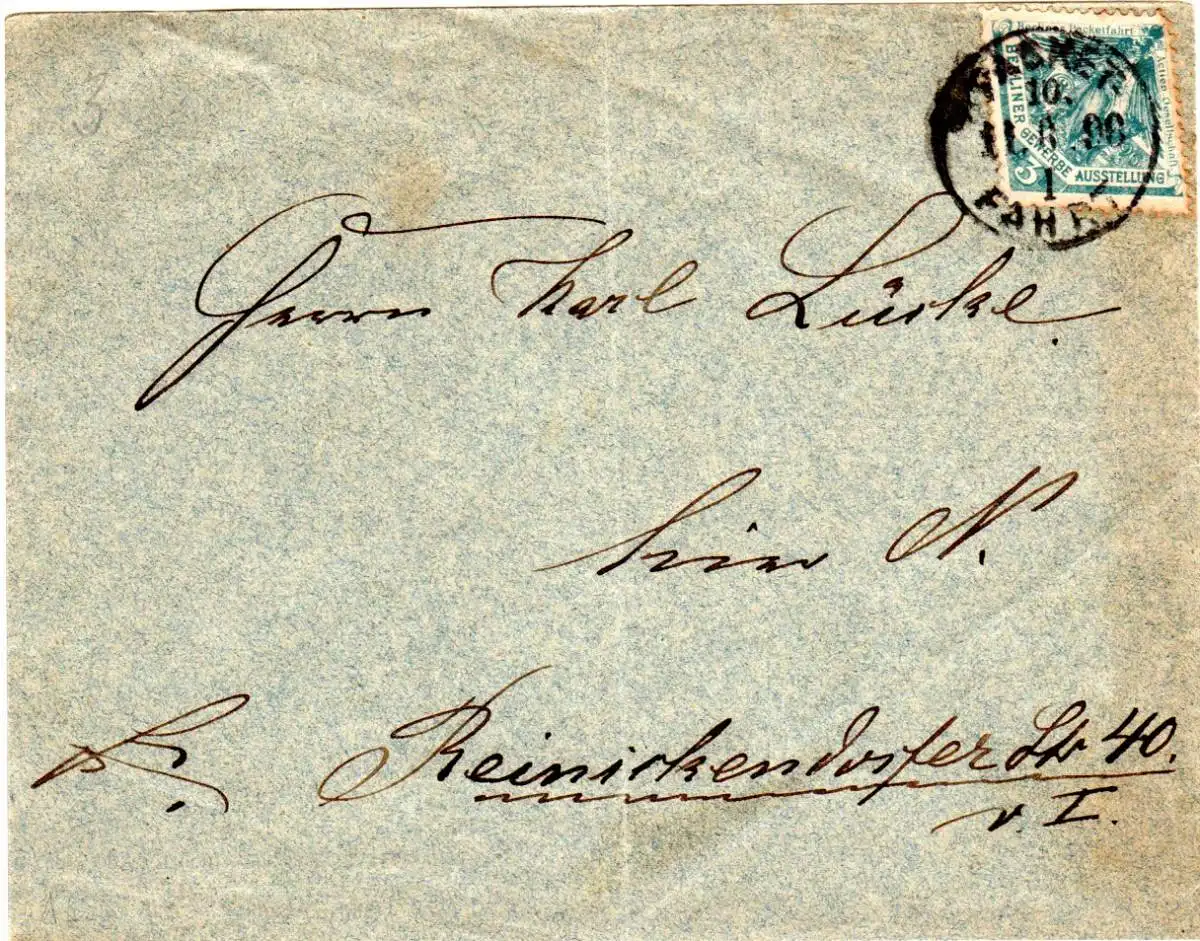 3
Berliner Packetfahrt
Actien-Gesellschaft
BERLINER GEWERBE AUSSTELLUNG
3
PACKET
10.
11. 6 .96
1
FAHRT
Herrn Karl Lücke.
hier N.
Reinickendorfer Str 40.
v. I.